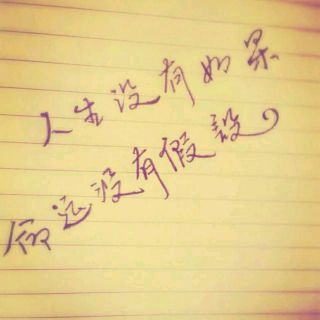 人生没有如果
命运没有假设